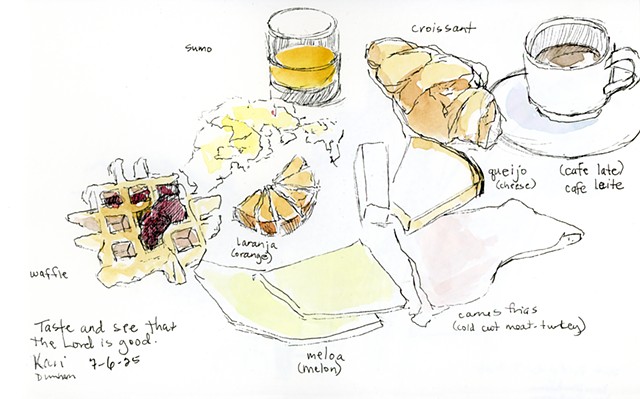 sumo
croissant
queijo
(cheese)
(cafe late)
cafe leite
laranja
(orange)
waffle
carnes frias
(cold cut meat-turkey)
meloa
(melon)
Taste and see that
the Lord is good.
Kari 7-6-25
Dunham